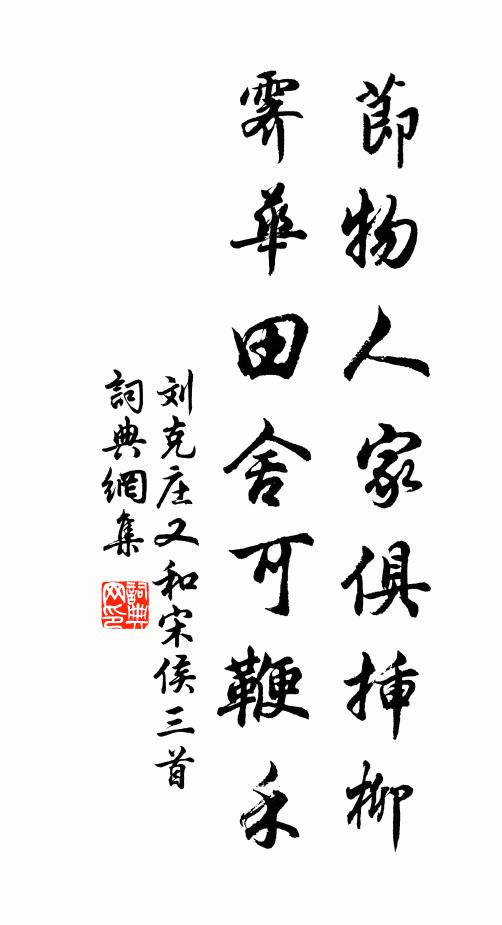 莭物人家俱揷柳
霁華田舍可鞭禾
刘克庄又和宋侯三首
詞典網集
詞典网印